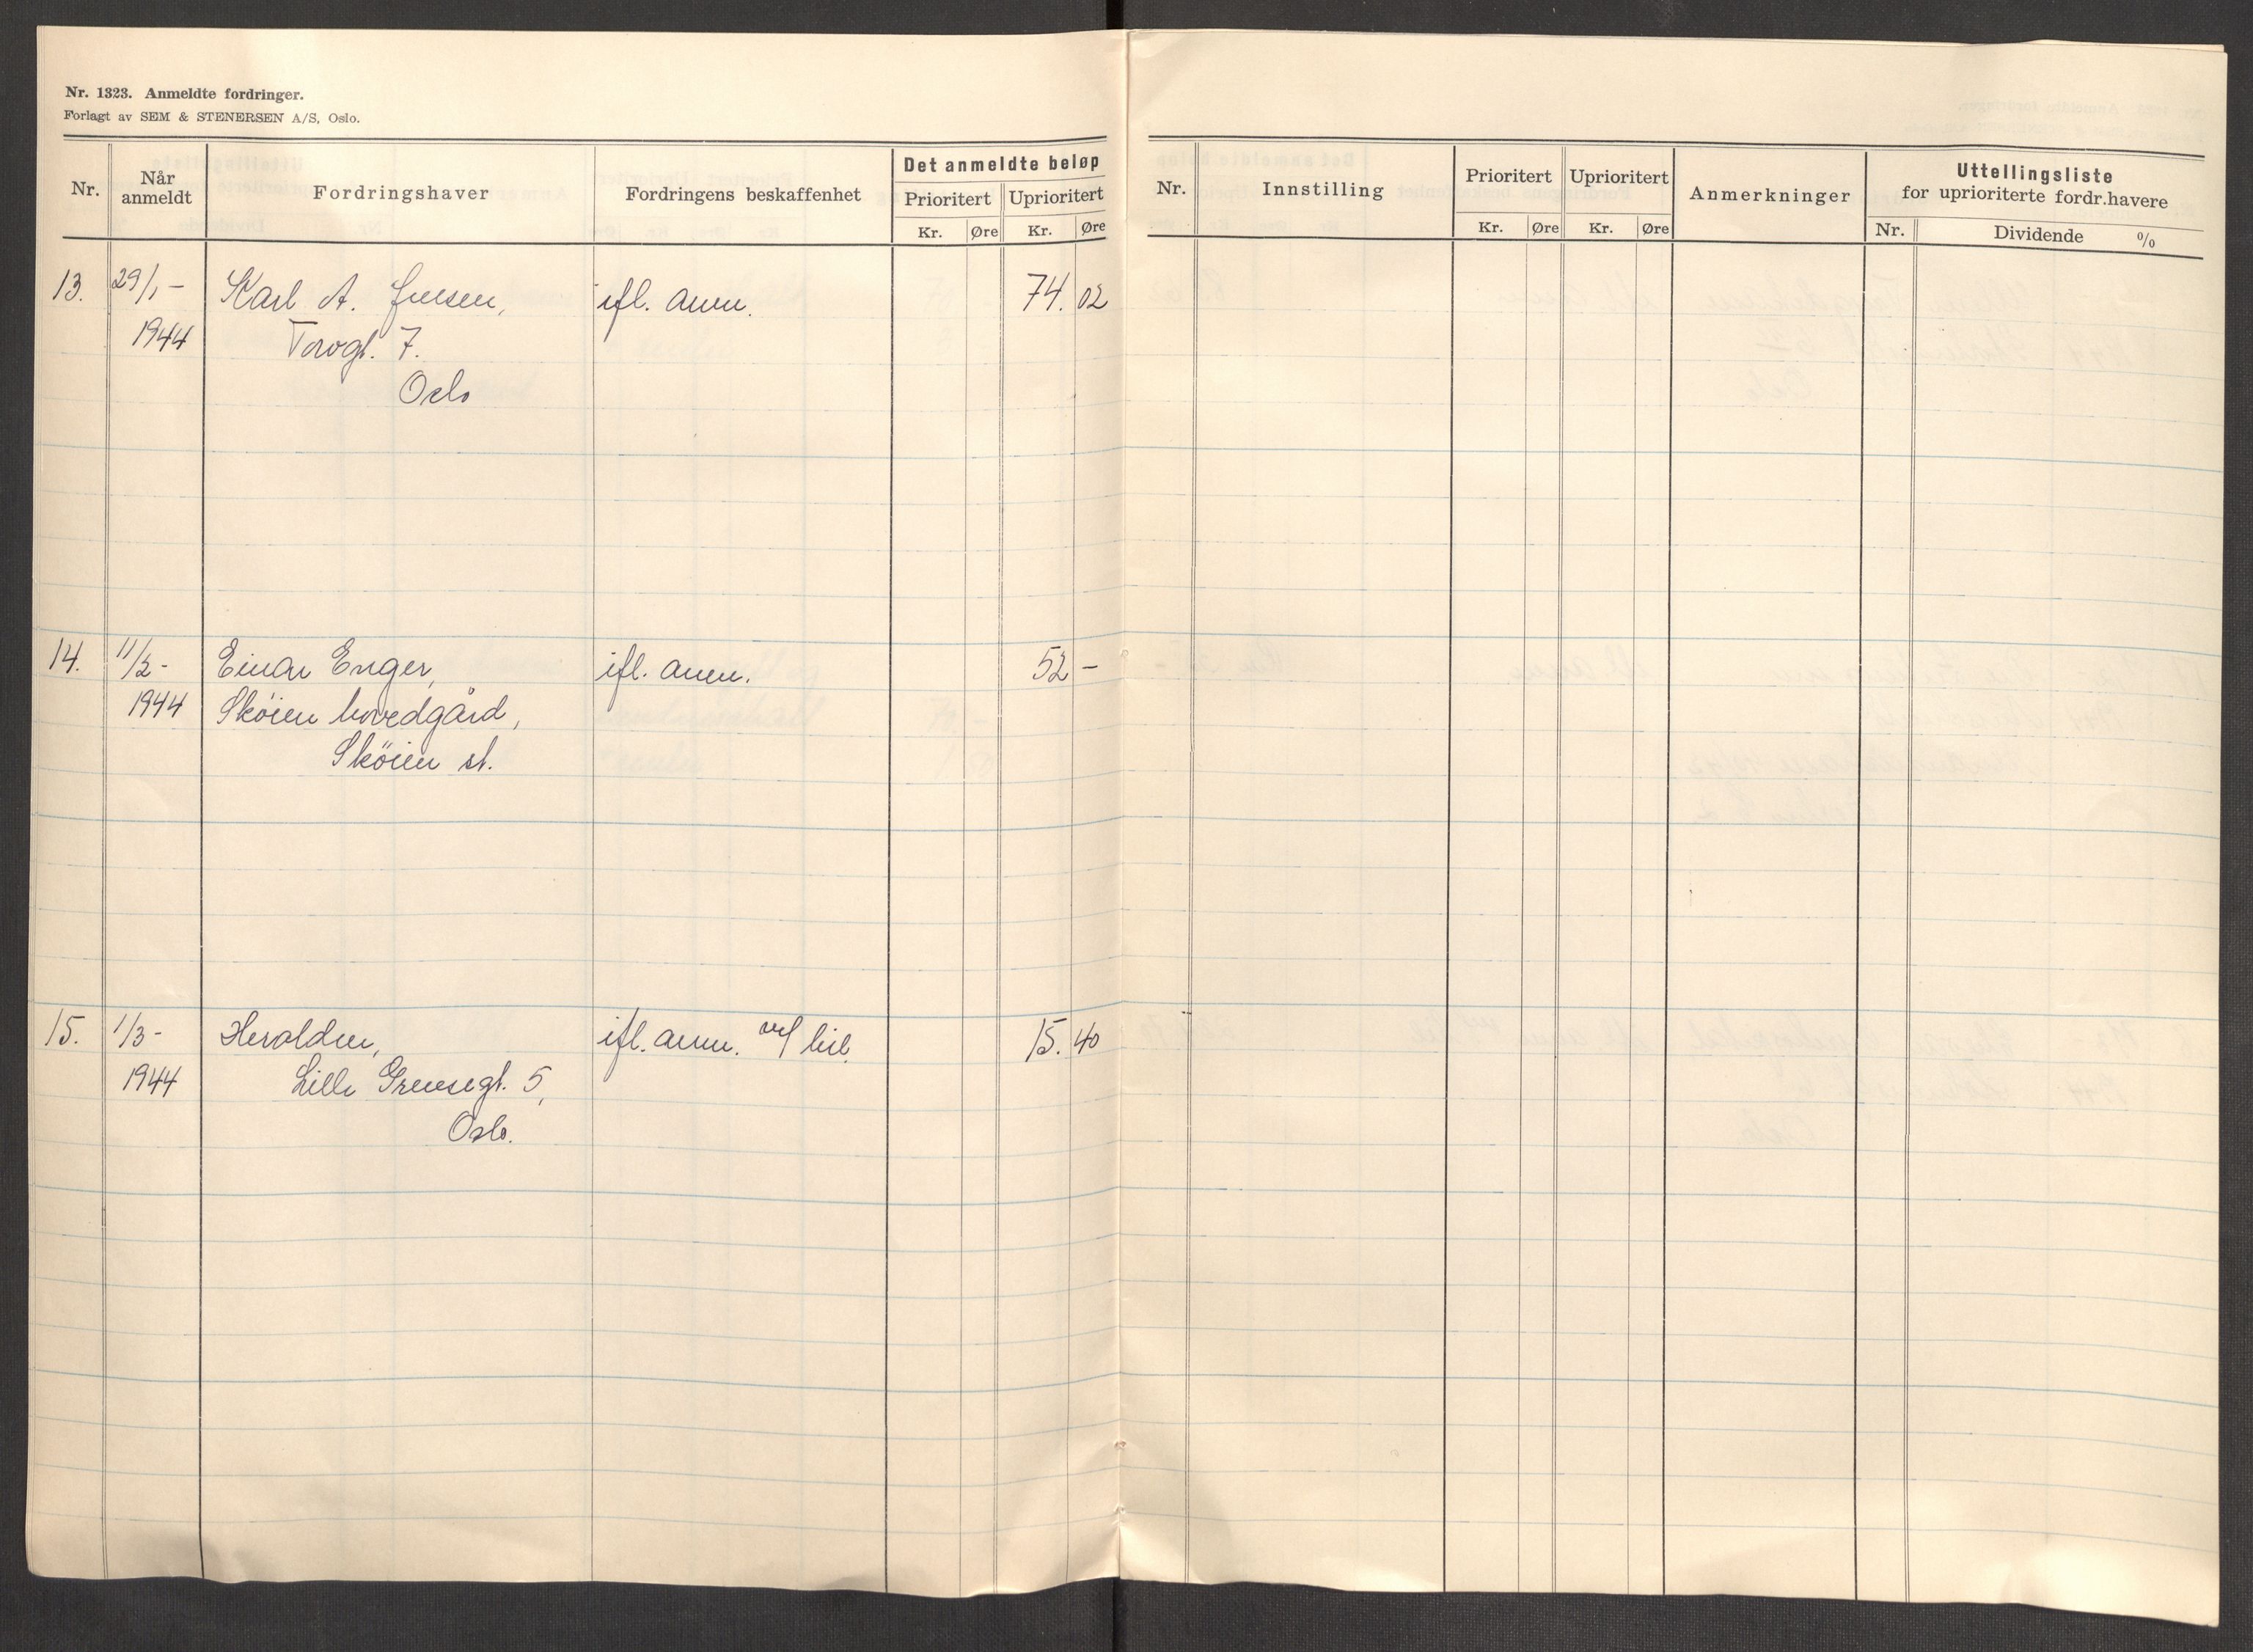 Nr. 1323. Anmeldte fordringer.
Forlagt av SEM & STENERSEN A/S, Oslo.
Nr. Når anmeldt Fordringshaver Fordringens beskaffenhet Det anmeldte beløp
Prioritert Uprioritert
Kr. Øre Kr. Øre
13. 29/1- Karl A. Jensen, ifl. anm. 74. 02
1944 Torvgt. 7.
Oslo
14. 11/2- Einar Enger, ifl. anm. 52 -
1944 Sköien hovedgård,
Sköien st.
15. 1/3- Heralden, ifl. anm. m/ bil. 15. 40
1944 Lille Grensegt. 5,
Oslo.
Nr. Innstilling Prioritert Uprioritert Anmerkninger Uttellingsliste
for uprioriterte fordr.havere
Kr. Øre Kr. Øre Nr. Dividende %